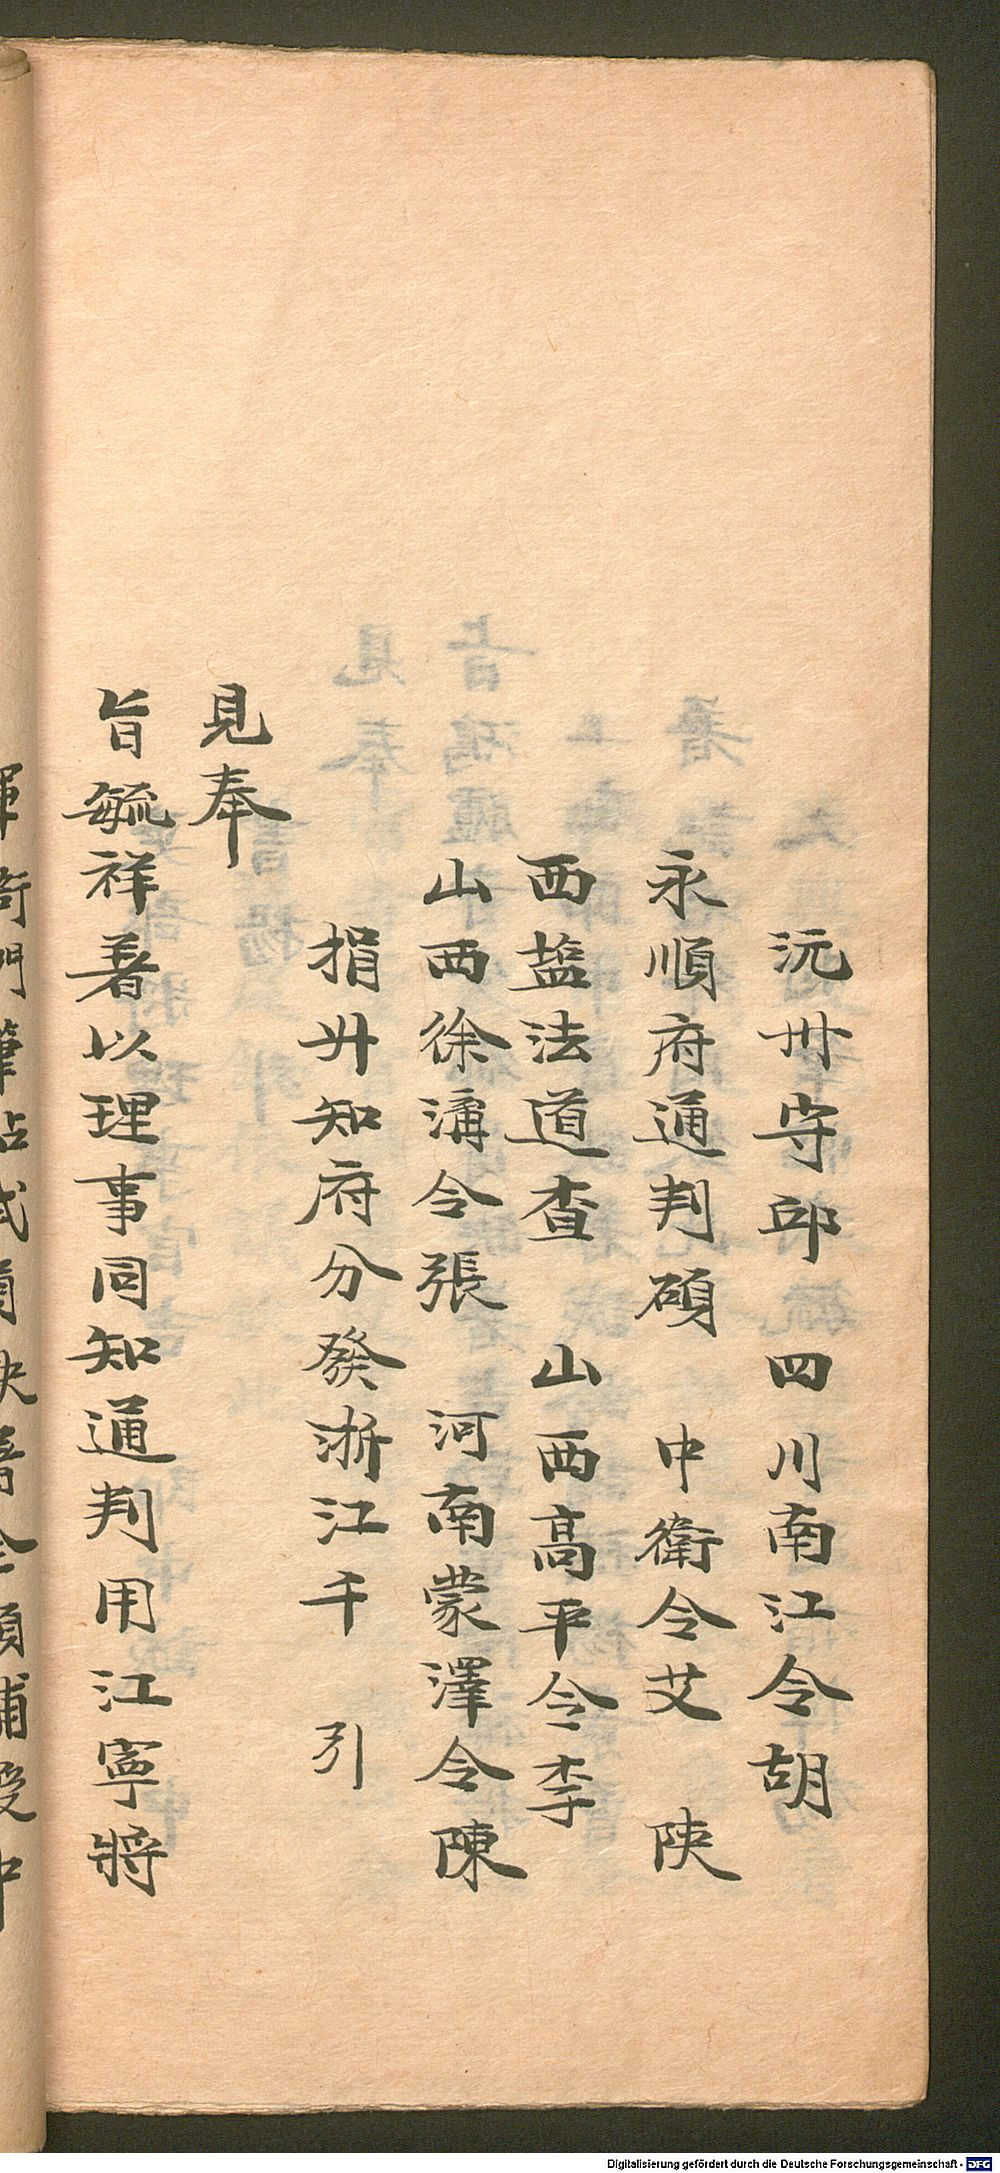 沅州守邱 四川南江令胡
永順府通判碩 中衛令艾 陝
西盐法道查 山西高平令李
山西徐溝令張 河南蒙澤令陳
捐升知府分發浙江千 引
見奉
旨毓祥著以理事同知通判用 江寧將
Digitalisierung gefördert durch die Deutsche Forschungsgemeinschaft - DFG